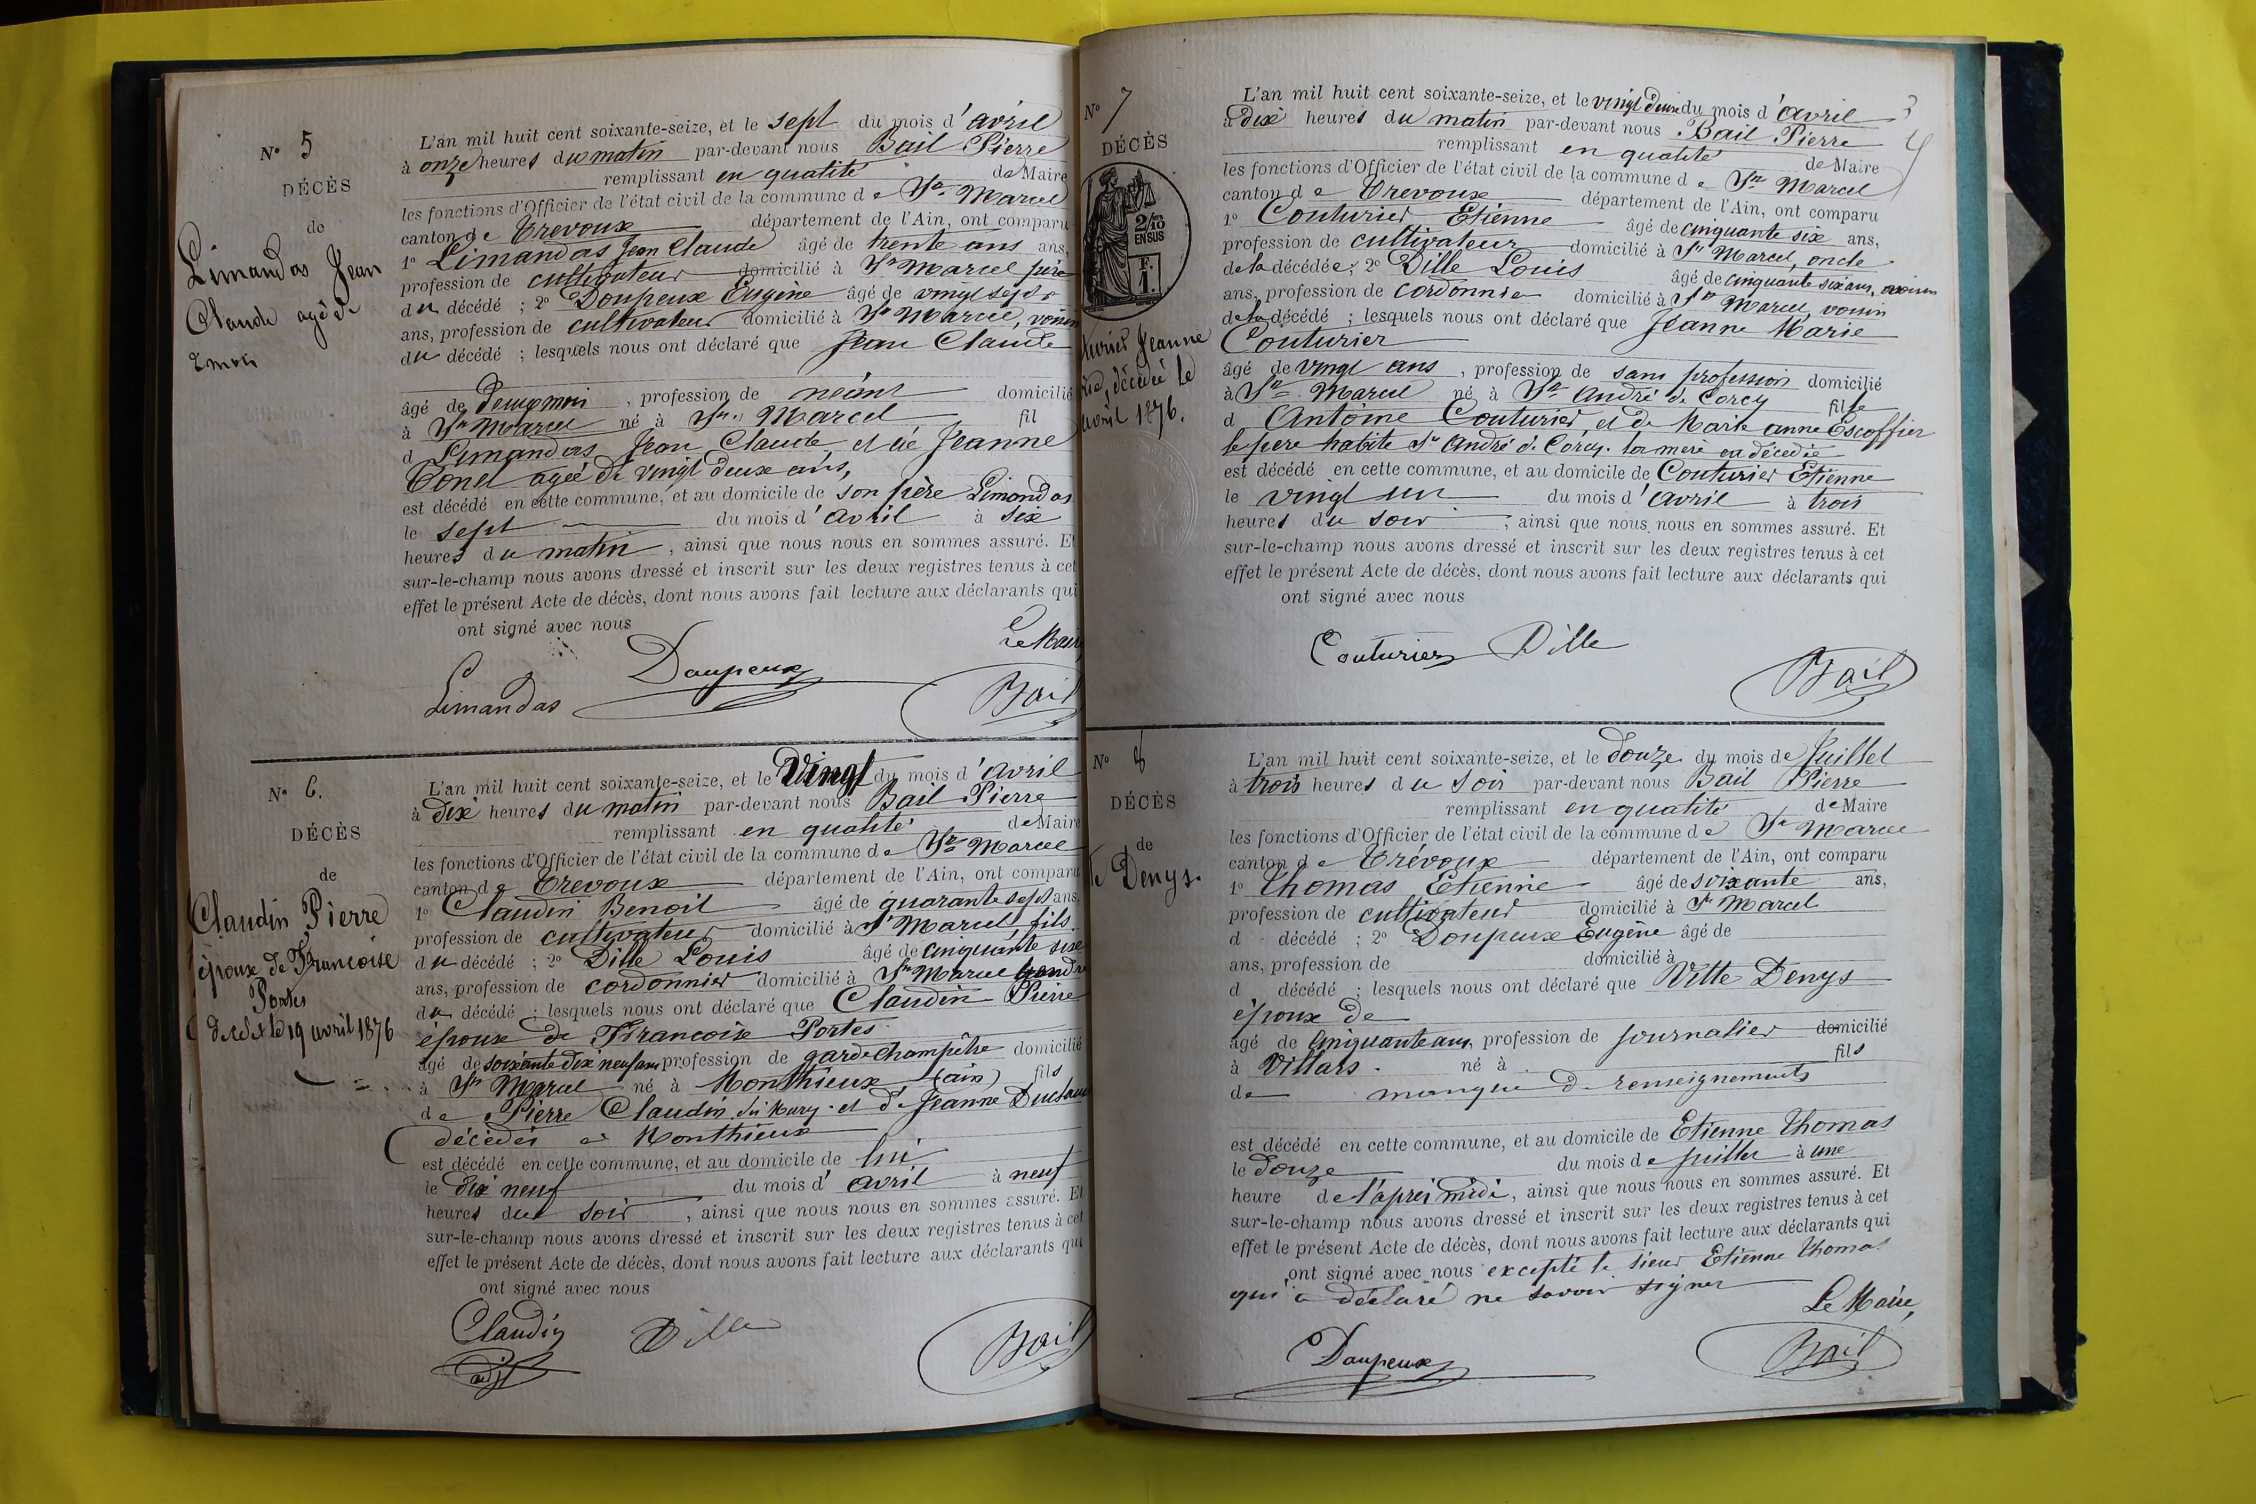 N° 5
DÉCÈS
de
Limandas Jean
Claude agé de
2 mois
L'an mil huit cent soixante-seize, et le sept du mois d'avril
à onze heures du matin par-devant nous Bail Pierre
remplissant en qualité de Maire
les fonctions d'Officier de l'état civil de la commune de St Marcel
canton de Trevoux département de l'Ain, ont comparu
1° Limandas Jean Claude âgé de trente ans ans,
profession de cultivateur domicilié à St Marcel père
du décédé ; 2° Doupeux Eugène âgé de vingt sept
ans, profession de cultivateur domicilié à St Marcel, voisin
du décédé ; lesquels nous ont déclaré que Jean Claude
âgé de deux moi , profession de néant domicilié
à St Marcel né à St Marcel fil
d Limandas Jean Claude et de Jeanne
Tonel agée de vingt deux ans,
est décédé en cette commune, et au domicile de son père Limandas
le sept du mois d'avril à six
heures du matin , ainsi que nous nous en sommes assuré. Et
sur-le-champ nous avons dressé et inscrit sur les deux registres tenus à cet
effet le présent Acte de décès, dont nous avons fait lecture aux déclarants qui
ont signé avec nous
Le Maire
Limandas Doupeux Bail
N° 6.
DÉCÈS
de
Claudin Pierre
époux de Francoise
Portes
décédé le 19 avril 1876
L'an mil huit cent soixante-seize, et le Vingt du mois d'avril
à dix heures du matin par-devant nous Bail Pierre
remplissant en qualité de Maire
les fonctions d'Officier de l'état civil de la commune de St Marcel
canton de Trevoux département de l'Ain, ont comparu
1° Claudin Benoit âgé de quarante sept ans,
profession de cultivateur domicilié à St Marcel fils
du décédé ; 2° Dille Louis âgé de cinquante six
ans, profession de cordonnier domicilié à St Marcel gendre
du décédé ; lesquels nous ont déclaré que Claudin Pierre
époux de Francoise Portes
âgé de soixante dix neuf ans profession de garde champêtre domicilié
à St Marcel né à Monthieux (ain) fils
de Pierre Claudin et de Jeanne
décédés à Monthieux
est décédé en cette commune, et au domicile de lui
le dix neuf du mois d'avril à neuf
heures du soir , ainsi que nous nous en sommes assuré. Et
sur-le-champ nous avons dressé et inscrit sur les deux registres tenus à cet
effet le présent Acte de décès, dont nous avons fait lecture aux déclarants qui
ont signé avec nous
Claudin Dille Bail
N° 7
DÉCÈS
2/10
EN SUS
F.
1.
Jeanne
décédée le
avril 1876.
L'an mil huit cent soixante-seize, et le vingt deux du mois d'avril
à dix heures du matin par-devant nous Bail Pierre
remplissant en qualité de Maire
les fonctions d'Officier de l'état civil de la commune de St Marcel
canton de Trevoux département de l'Ain, ont comparu
1° Couturier Etienne âgé de cinquante six ans,
profession de cultivateur domicilié à St Marcel, oncle
de la décédée ; 2° Dille Louis âgé de cinquante six ans, voisin
ans, profession de cordonnier domicilié à St Marcel, voisin
de la décédé ; lesquels nous ont déclaré que Jeanne Marie
Couturier
âgé de vingt ans , profession de sans profession domicilié
à St Marcel né à St André de Corcy fille
d Antoine Couturier, et de Marie anne Escoffier
le père habite St André de Corcy. la mère est décédée
est décédé en cette commune, et au domicile de Couturier Etienne
le vingt un du mois d'avril à trois
heures du soir ; ainsi que nous nous en sommes assuré. Et
sur-le-champ nous avons dressé et inscrit sur les deux registres tenus à cet
effet le présent Acte de décès, dont nous avons fait lecture aux déclarants qui
ont signé avec nous
Couturier Dille
Bail
N° 8
DÉCÈS
de
Denys.
L'an mil huit cent soixante-seize, et le douze du mois de Juillet
à trois heures du soir par-devant nous Bail Pierre
remplissant en qualité de Maire
les fonctions d'Officier de l'état civil de la commune de St Marcel
canton de Trévoux département de l'Ain, ont comparu
1° Thomas Etienne âgé de soixante ans,
profession de cultivateur domicilié à St Marcel
d décédé ; 2° Doupeux Eugène âgé de
ans, profession de domicilié à
d décédé ; lesquels nous ont déclaré que Vitte Denys
époux de
âgé de cinquante ans, profession de journalier domicilié
à Villars. né à fils
de manque de renseignements
est décédé en cette commune, et au domicile de Etienne Thomas
le douze du mois de juillet à une
heure de l'après midi, ainsi que nous nous en sommes assuré. Et
sur-le-champ nous avons dressé et inscrit sur les deux registres tenus à cet
effet le présent Acte de décès, dont nous avons fait lecture aux déclarants qui
ont signé avec nous excepté le sieur Etienne Thomas
qui a déclaré ne savoir signer
Le Maire,
Doupeux Bail